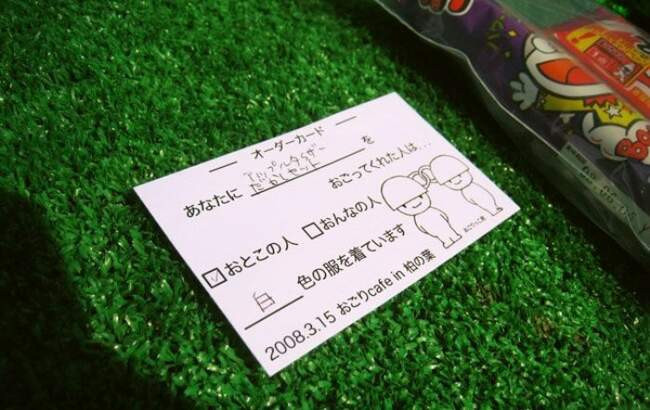 オーダーカード
アップルタイザー
だがしセット
あなたに を
おごってくれた人は…
おとこの人 おんなの人
白 色の服を着ています
2008.3.15 おごりcafe in 柏の葉